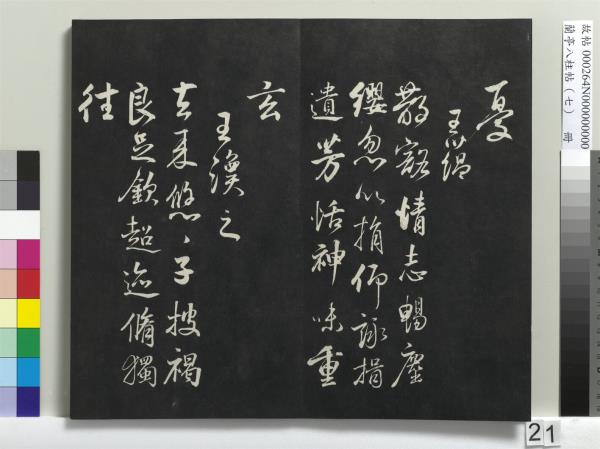 憂
王蘊
散豁情志暢塵
纓忽以捐仰詠揖
遺芳恬神味重
玄
王渙之
去來悠〻子披褐
良足欽超迹脩獨
往
故帖 000264N000000000
蘭亭八柱帖（七） 冊
21